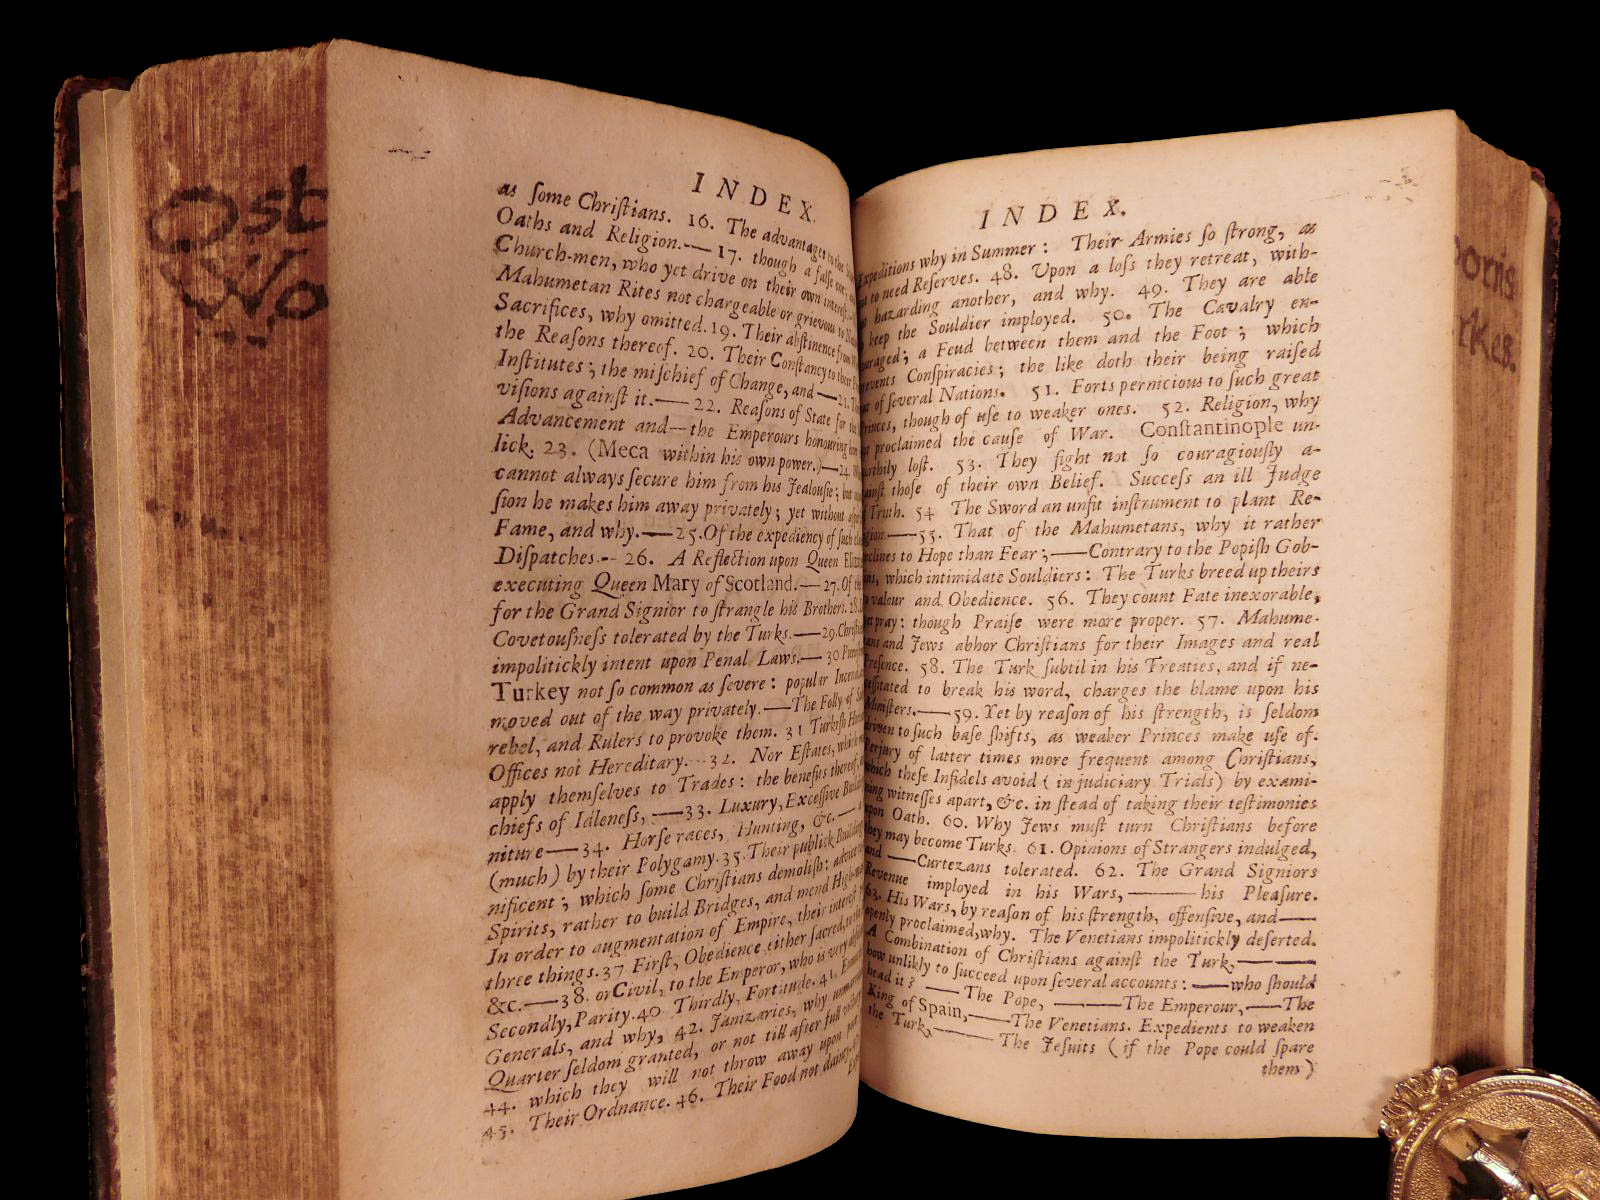 Ost
Wo
INDEX.
as ſome Chriſtians. 16. The advantages to the
Oaths and Religion.—17. though a falſe one
Church-men, who yet drive on their own intereſt.
Mahumetan Rites not chargeable or grievous to
Sacrifices, why omitted. 19. Their abſtinence from
the Reaſons thereof. 20. Their Conſtancy to their
Inſtitutes; the miſchief of Change, and—21.
viſions againſt it.—22. Reaſons of State for the
Advancement and—the Emperours honouring
lick. 23. (Meca within his own power.)—24.
cannot always ſecure him from his Jealouſie; but
ſion he makes him away privately; yet without
Fame, and why.—25. Of the expediency of ſuch
Diſpatches.-- 26. A Reflection upon Queen
executing Queen Mary of Scotland.—27. Of the
for the Grand Signior to ſtrangle his Brothers. 28.
Covetouſneſs tolerated by the Turks.—29.
impolitickly intent upon Penal Laws.—30
Turkey not ſo common as ſevere: popular
moved out of the way privately.—The Folly of
rebel, and Rulers to provoke them. 31 Turkiſh
Offices not Hereditary.--32. Nor Eſtates, which
apply themſelves to Trades: the benefits thereof,
chiefs of Idleneſs,—33. Luxury, Exceſſive
niture—34. Horſe races, Hunting, &c.—
(much) by their Polygamy. 35. Their publick Building
nificent; which ſome Chriſtians demoliſh: advice
Spirits, rather to build Bridges, and mend High-
In order to augmentation of Empire, their intereſt
three things. 37 Firſt, Obedience either ſacred, to
&c.—38. or Civil, to the Emperor, who is very
Secondly, Parity. 40 Thirdly, Fortitude. 41.
Generals, and why, 42. Janizaries, why
Quarter ſeldom granted, or not till after full
44. which they will not throw away upon
45. Their Ordnance. 46. Their Food not dainty.
INDEX.
Expeditions why in Summer: Their Armies ſo ſtrong, as
to need Reſerves. 48. Upon a loſs they retreat, with-
hazarding another, and why. 49. They are able
keep the Souldier imployed. 50. The Cavalry en-
couraged; a Feud between them and the Foot; which
prevents Conſpiracies; the like doth their being raiſed
of ſeveral Nations. 51. Forts pernicious to ſuch great
Princes, though of uſe to weaker ones. 52. Religion, why
proclaimed the cauſe of War. Conſtantinople un-
worthily loſt. 53. They fight not ſo couragiouſly a-
gainſt thoſe of their own Belief. Succeſs an ill Judge
Truth. 54 The Sword an unfit inſtrument to plant Re-
ligion.—55. That of the Mahumetans, why it rather
inclines to Hope than Fear;—Contrary to the Popiſh Gob-
lins, which intimidate Souldiers: The Turks breed up theirs
valour and Obedience. 56. They count Fate inexorable,
yet pray: though Praiſe were more proper. 57. Mahume-
tans and Jews abhor Chriſtians for their Images and real
Preſence. 58. The Turk ſubtil in his Treaties, and if ne-
ceſſitated to break his word, charges the blame upon his
Miniſters.—59. Yet by reaſon of his ſtrength, is ſeldom
driven to ſuch baſe ſhifts, as weaker Princes make uſe of.
Perjury of latter times more frequent among Chriſtians,
which theſe Infidels avoid (in judiciary Trials) by exami-
ning witneſſes apart, &c. in ſtead of taking their teſtimonies
upon Oath. 60. Why Jews muſt turn Chriſtians before
they may become Turks. 61. Opinions of Strangers indulged,
and —Curtezans tolerated. 62. The Grand Signiors
Revenue imployed in his Wars,—his Pleaſure.
63. His Wars, by reaſon of his ſtrength, offenſive, and—
openly proclaimed, why. The Venetians impolitickly deſerted.
A Combination of Chriſtians againſt the Turk,—
how unlikly to ſucceed upon ſeveral accounts:—who ſhould
head it? —The Pope,—The Emperour,—The
King of Spain,—The Venetians. Expedients to weaken
the Turk,—The Jeſuits (if the Pope could ſpare
them)
borns
rkes.